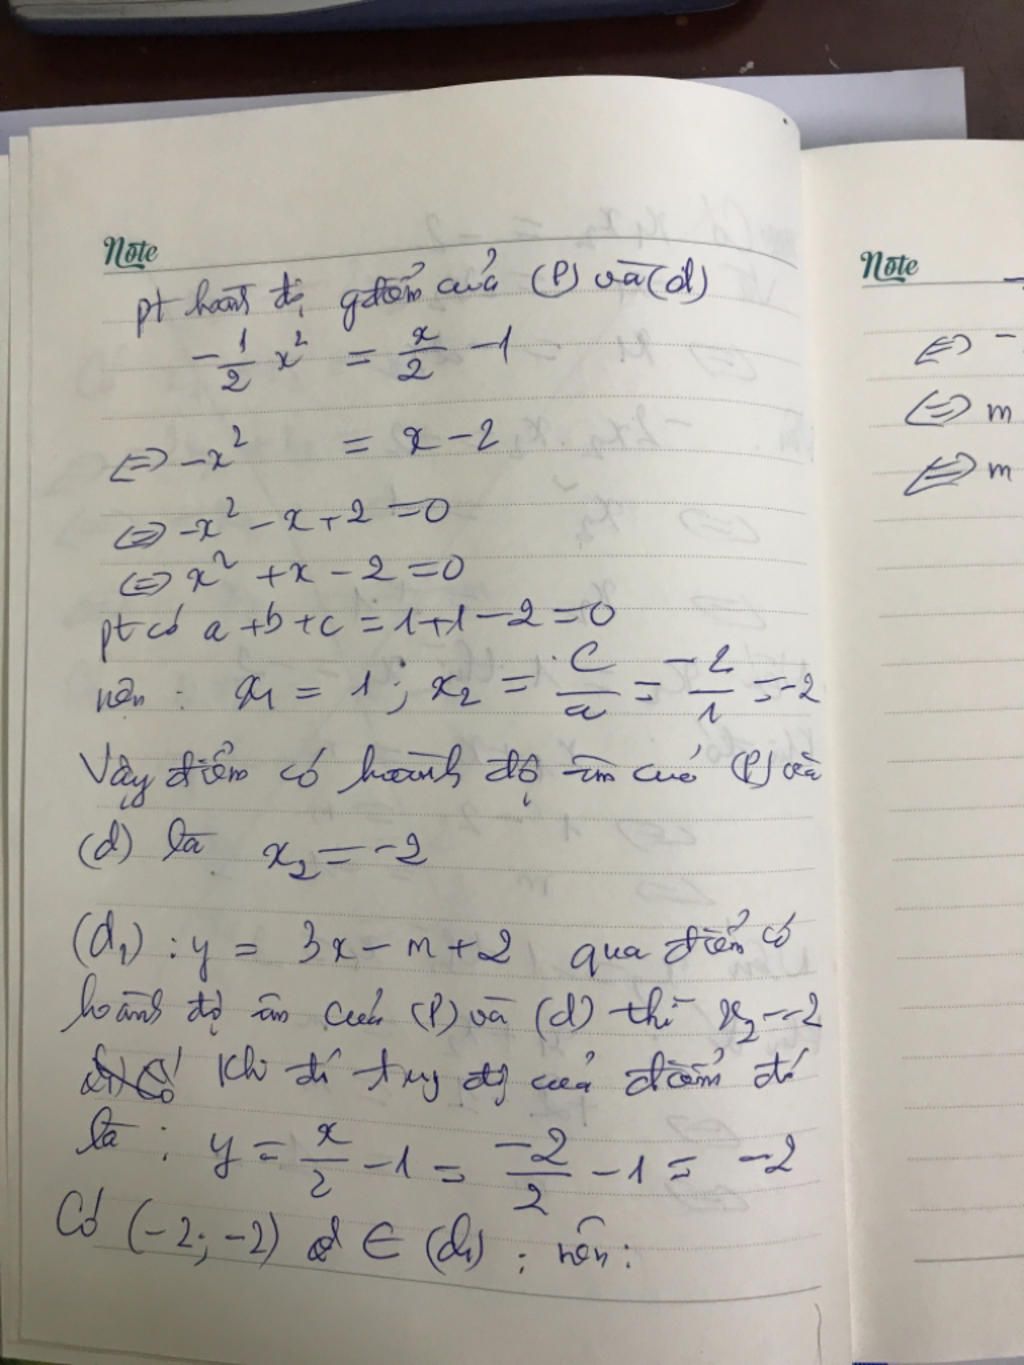 Note
pt hoành độ gđiểm của (P) và (d)
-1/2 x² = x/2 - 1
⇔ -x² = x - 2
⇔ -x² - x + 2 = 0
⇔ x² + x - 2 = 0
pt có a + b + c = 1 + 1 - 2 = 0
nên : x₁ = 1 ; x₂ = c/a = -2/1 = -2
Vậy điểm có hoành độ âm của (P) và
(d) là x₂ = -2
(d₁) : y = 3x - m + 2 qua điểm có
hoành độ âm của (P) và (d) thì x₂ = -2
Khi đó tung độ của điểm đó
là : y = x/2 - 1 = -2/2 - 1 = -2
Có (-2; -2) ∈ (d₁) ; nên :
Note
⇔ -
⇔ m
⇔ m